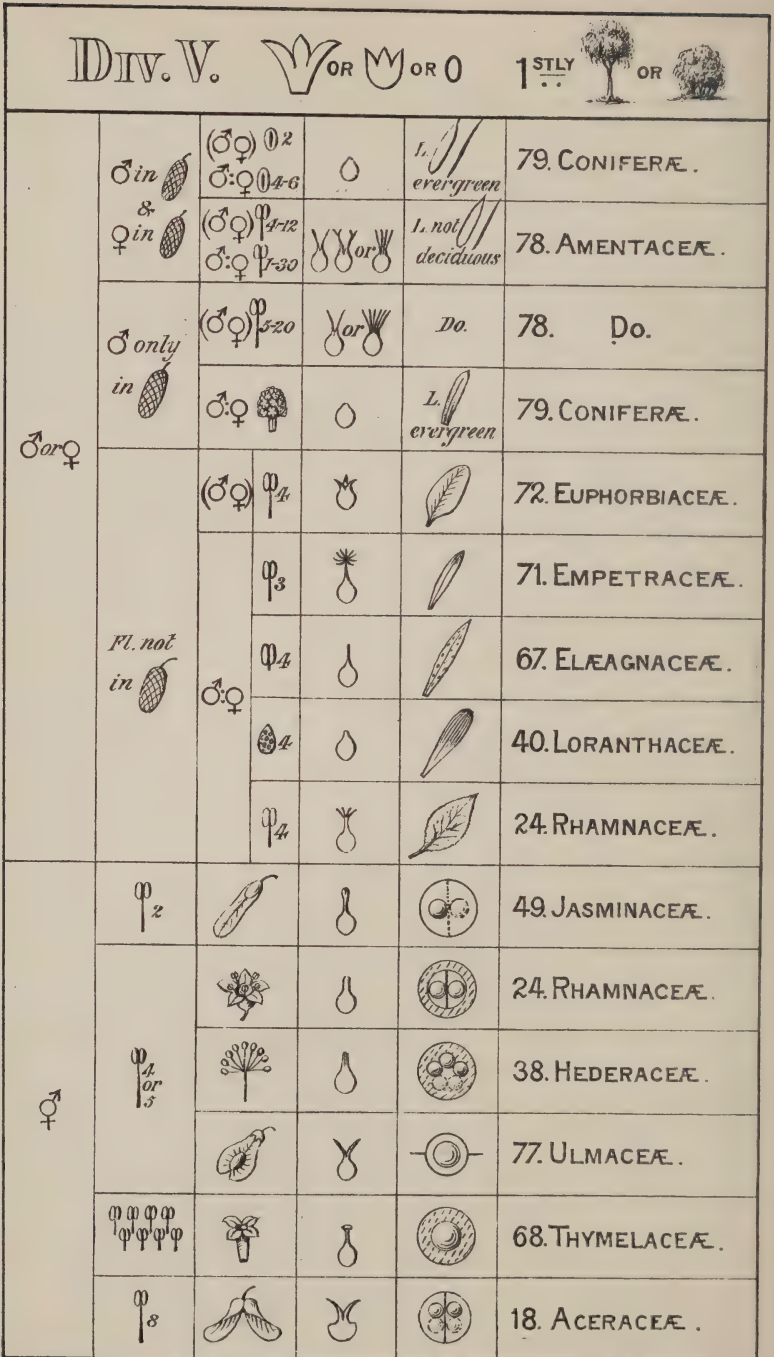 DIV. V. OR OR 0 1STLY OR
♂ or ♀
♂ in
&
♀ in
(♂♀) 2
♂:♀ 4-6
L.
evergreen
79. CONIFERÆ.
(♂♀) 4-12
♂:♀ 1-30
or
L. not
deciduous
78. AMENTACEÆ.
♂ only
in
(♂♀) 5-20
or
Do.
78. Do.
♂:♀
L.
evergreen
79. CONIFERÆ.
Fl. not
in
(♂♀) 4
72. EUPHORBIACEÆ.
♂:♀
3
71. EMPETRACEÆ.
4
67. ELÆAGNACEÆ.
4
40. LORANTHACEÆ.
4
24. RHAMNACEÆ.
2
49. JASMINACEÆ.
4
or
5
24. RHAMNACEÆ.
38. HEDERACEÆ.
77. ULMACEÆ.
68. THYMELACEÆ.
8
18. ACERACEÆ.